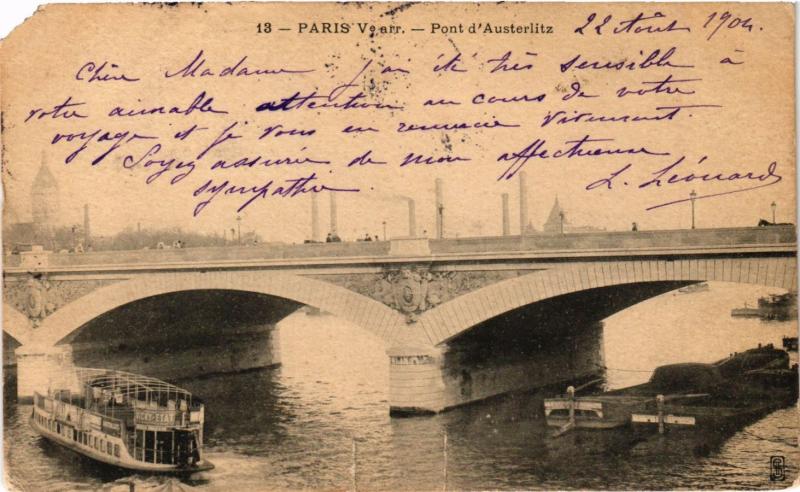 13 – PARIS Ve arr. – Pont d'Austerlitz
22 Août 1904.
Chère Madame j'ai été très sensible à
votre aimable attention au cours de votre
voyage et je vous en remercie vivement.
Soyez assurée de mon affectueuse
sympathie.
L. Léonard